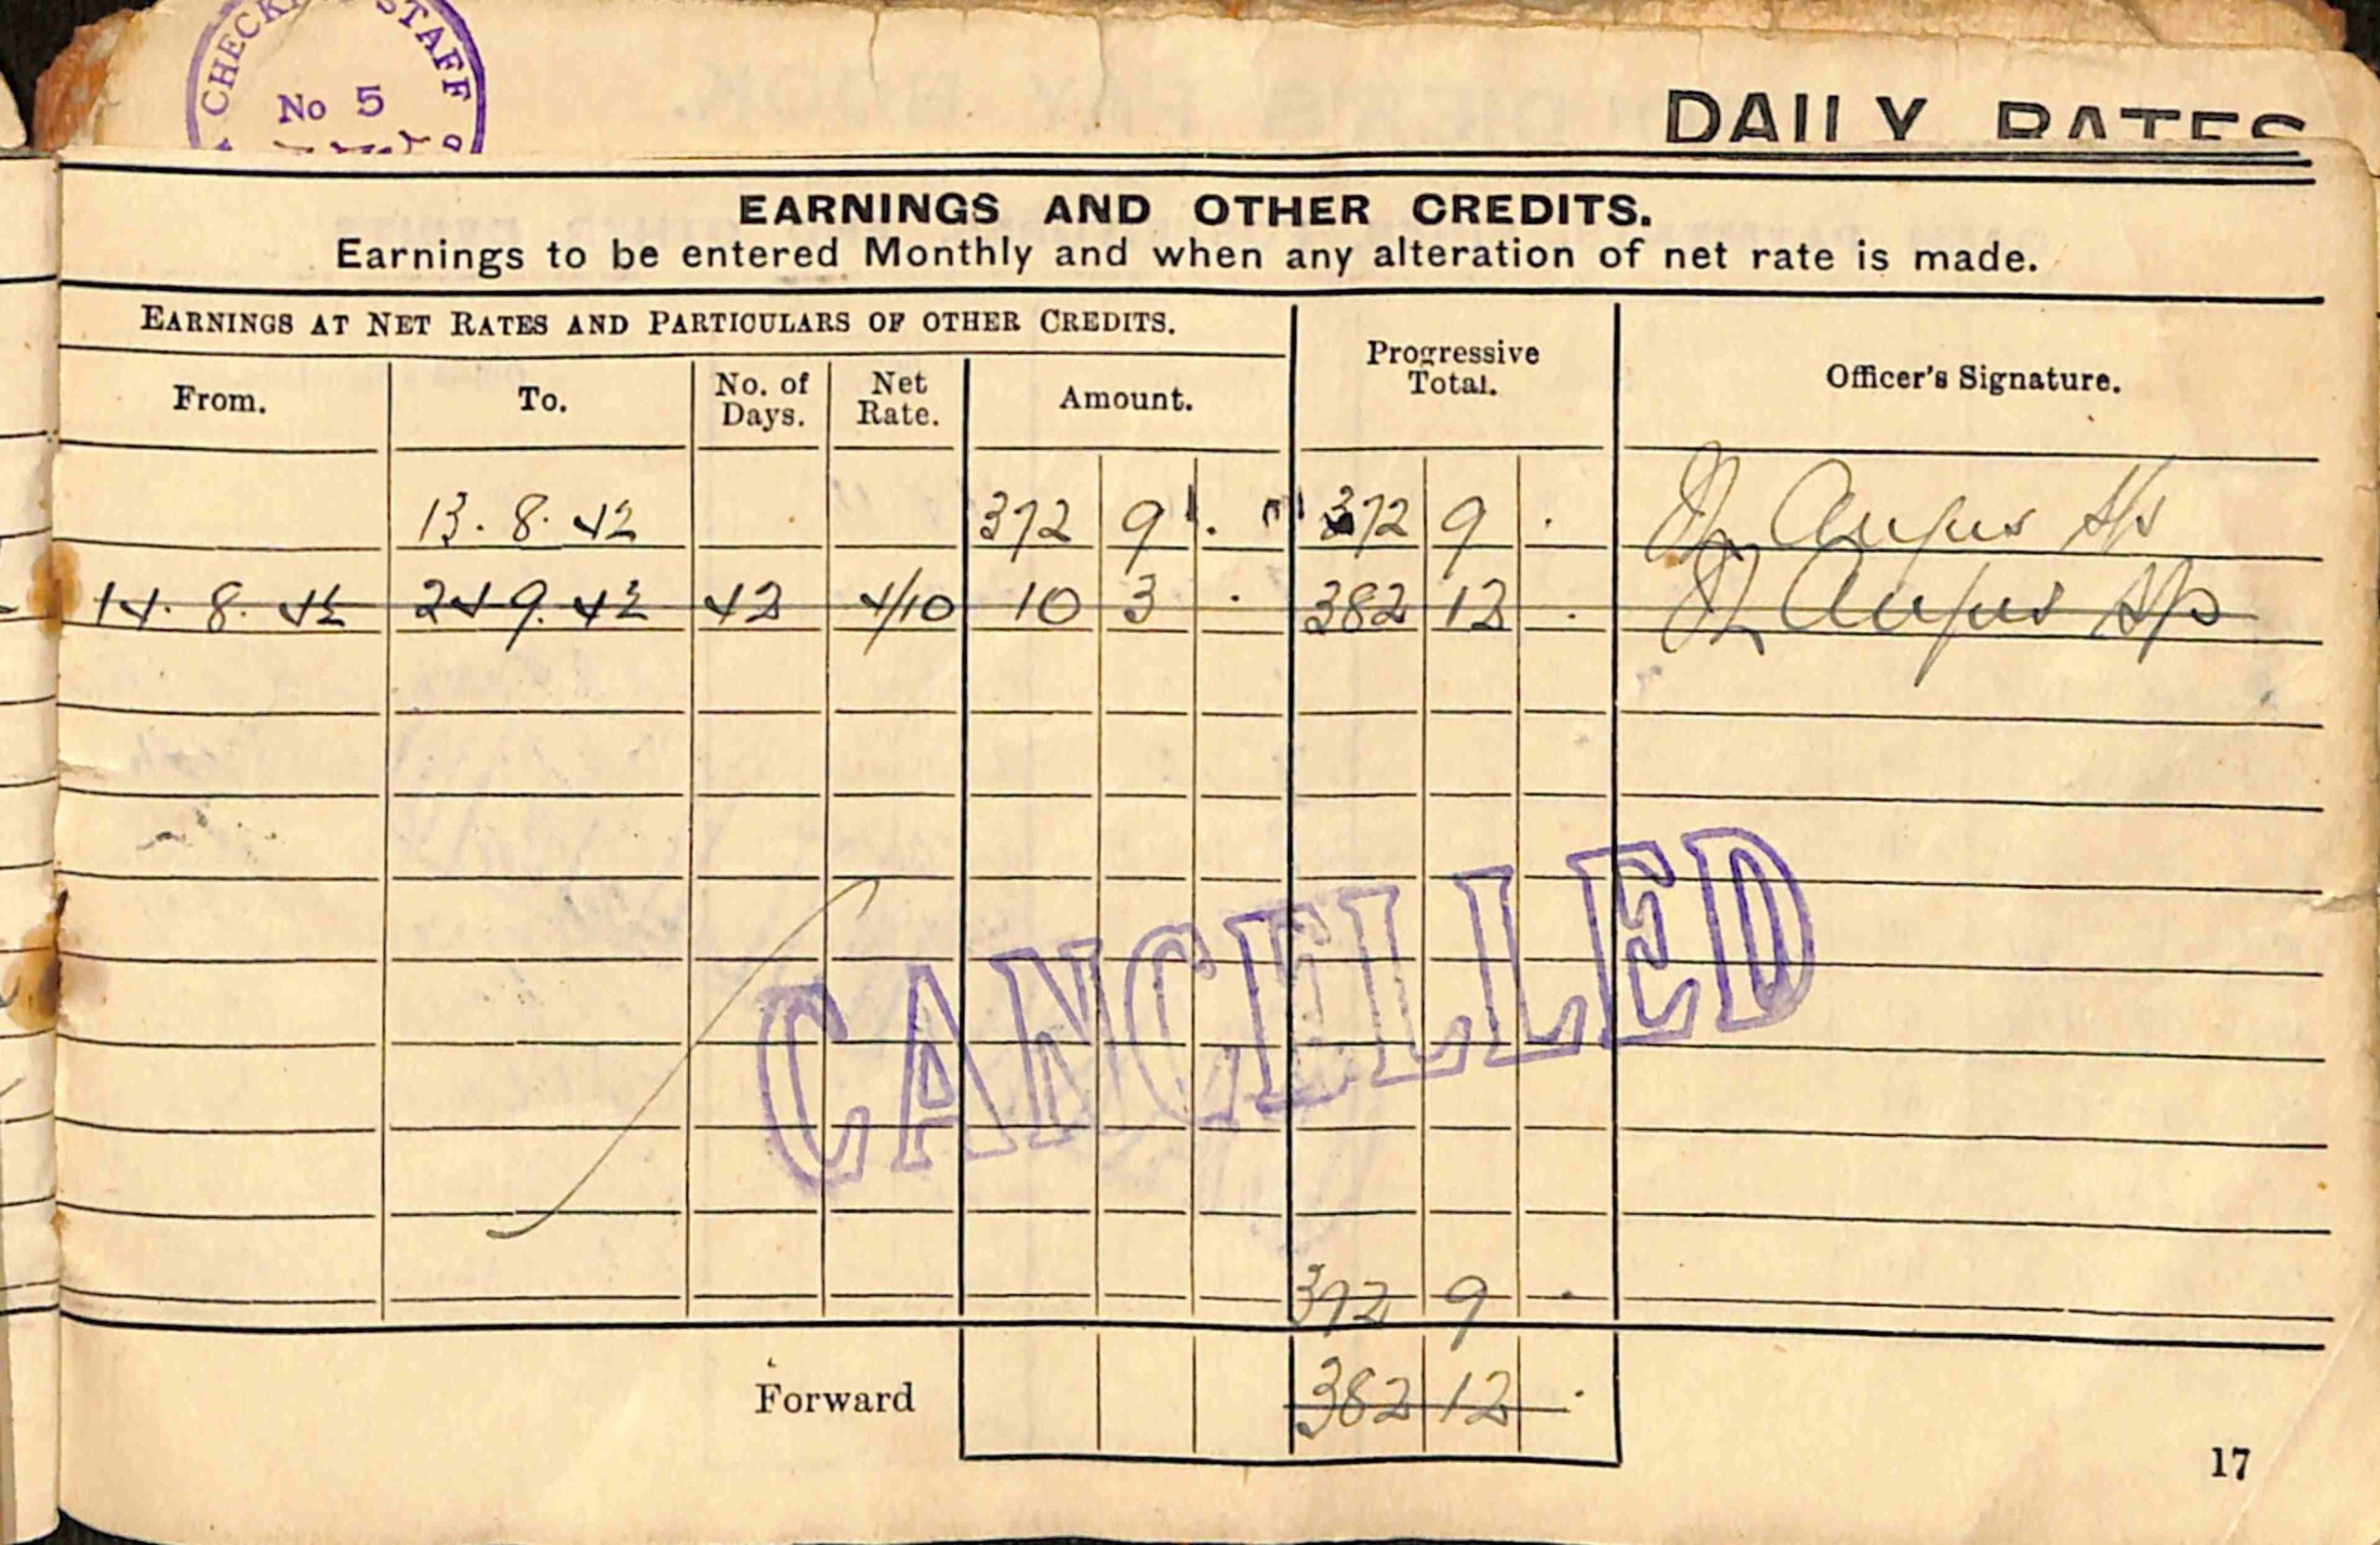 CHECK STAFF
No 5
DAILY RATES
EARNINGS AND OTHER CREDITS.
Earnings to be entered Monthly and when any alteration of net rate is made.
EARNINGS AT NET RATES AND PARTICULARS OF OTHER CREDITS.
Progressive Total.
Officer's Signature.
From. To. No. of Days. Net Rate. Amount.
13. 8. 42 372 9 . 372 9 . Angus
14. 8. 42 24 9. 42 42 4/10 10 3 . 382 12 . Angus
CANCELLED
372 9 .
Forward 382 12 .
17